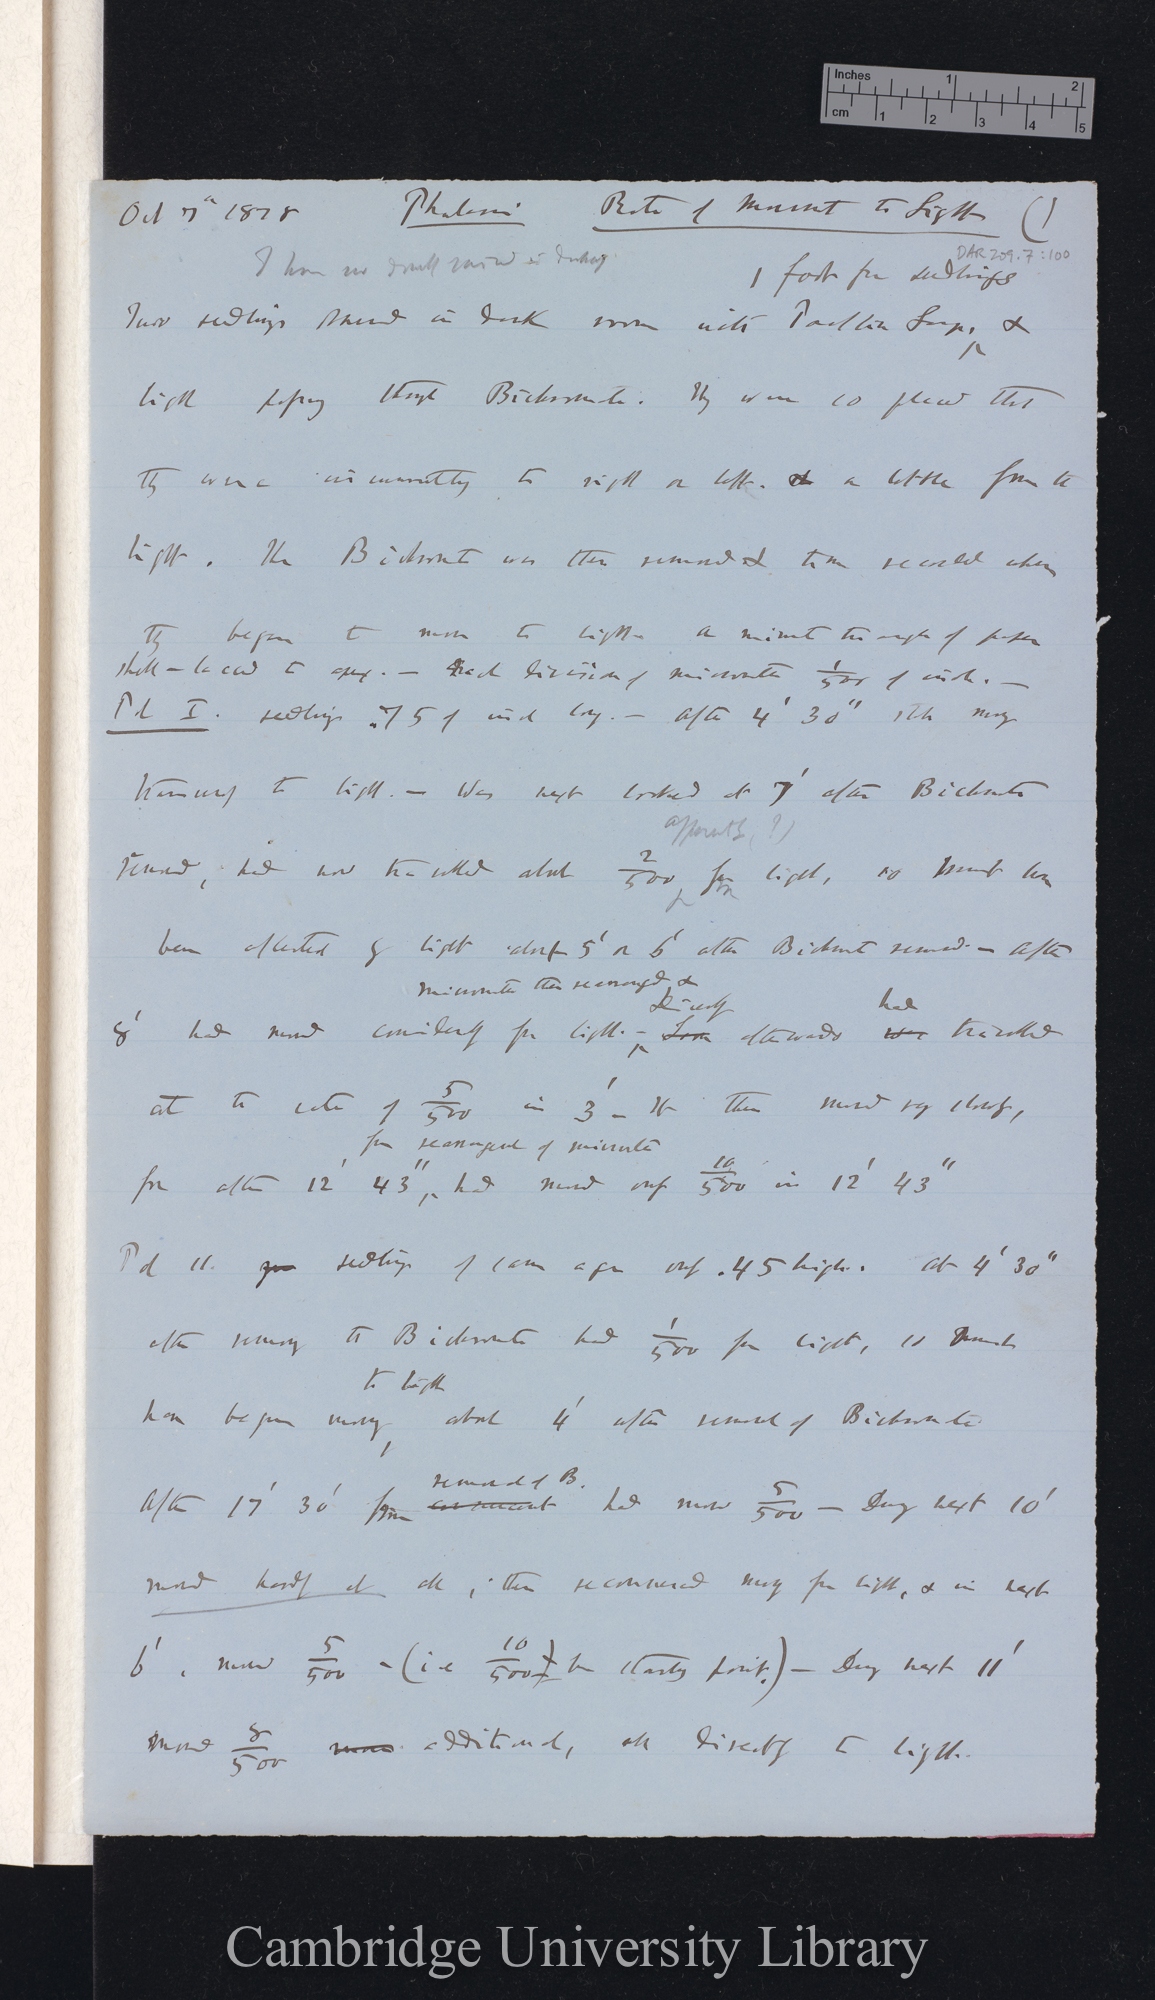 Inches 1 2
cm 1 2 3 4 5
Oct 7th 1878 Phalaris Rate of movement to Light (1
DAR 209.7:100
I have no doubt raised in darkness
1 foot from seedlings
Two seedlings placed in dark room with Paraffin Lamp, &
light passing through Bichromate. They were so placed that
they were to right or left. & a little from the
light. The Bichromate was then removed & time recorded when
they began to move to light. a minute triangle of paper
shell-lacced to apex. — Each division of micrometer 1/500 of inch. —
Pd I. seedlings .75 of inch long. — After 4' 30" still moving
to light. — Was next looked at 7' after Bichromate
apparently (?)
removed; had now travelled about 2/500 from light, so must have
been affected by light about 5' or 6' after Bichromate removed. — After
micrometer then rearranged, &
directly had
8' had moved considerably from light. — afterwards travelled
at the rate of 5/500 in 3' — It then moved very slowly,
from rearrangement of micrometer
for after 12' 43", had moved only 10/500 in 12' 43"
Pd II. seedlings of same age only .45 high. At 4' 30"
after removing the Bichromate had 1/500 from light, so must
to light
have begun moving about 4' after removal of Bichromate
removal of B.
After 17' 30' from had moved 5/500 — During next 10'
moved hardly at all; then recommenced moving from light, & in next
6', moved 5/500 — (i.e. 10/500 from starting point.) — During next 11'
moved 8/500 additional, all directly to light.
Cambridge University Library